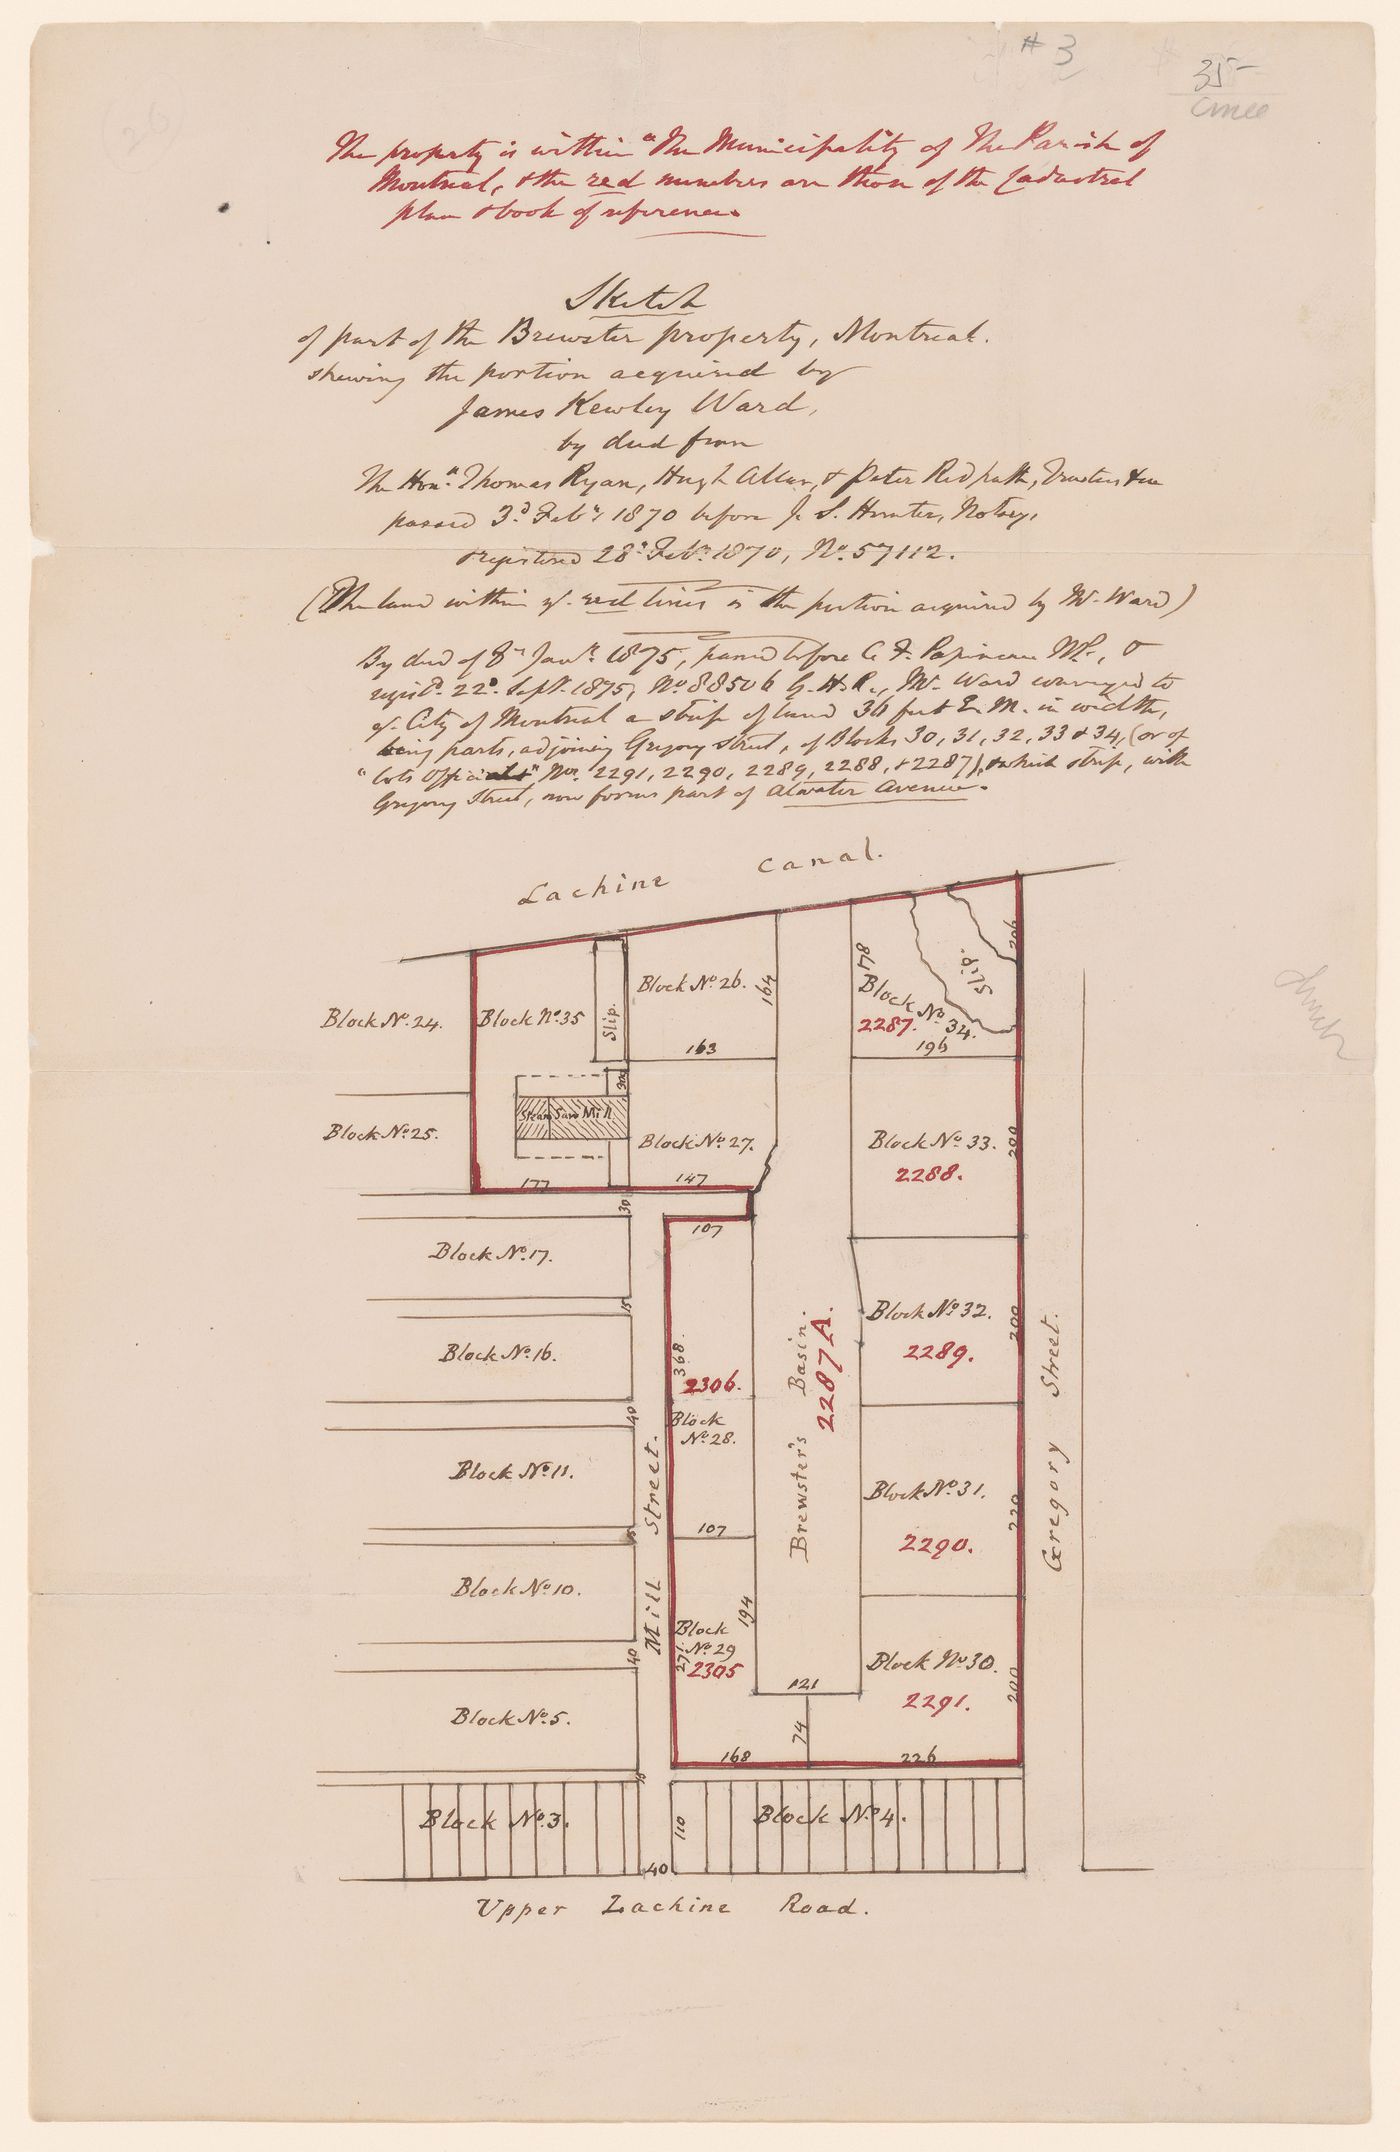 # 3
35-
(26)
The property is within "The Municipality of The Parish of
Montreal, & the red numbers are those of the Cadastral
plan & book of reference.
Sketch
of part of the Brewster property, Montreal.
shewing the portion acquired by
James Kewley Ward,
by deed from
The Hon. Thomas Ryan, Hugh Allan, & Peter Redpath, Trustees &c
passed 3d Feby 1870 before J. S. Hunter, Notary,
& registered 28th Feby 1870, No. 57112.
(The land within ye red lines is the portion acquired by Mr Ward)
By deed of 8th Jany 1875, passed before C. F. Papineau N.P., &
regist'd 22d Sept. 1875, No 88506 G.H.R., Mr. Ward conveyed to
ye City of Montreal a strip of land 36 feet E. M. in width,
being parts, adjoining Gregory Street, of Blocks 30, 31, 32, 33 & 34, (or of
"Lots Official" Nos. 2291, 2290, 2289, 2288, & 2287), & which strip, with
Gregory Street, now forms part of Atwater Avenue.
Lachine Canal.
Block No. 24.
Block No 35
Slip
Block No. 26.
164
178
Block No. 34.
2287.
Slip.
206
163
196
Block No. 25.
30
Steam Saw Mill
Block No. 27.
177
147
Block No. 33.
2288.
200
30
107
Block No. 17.
15
Block No. 16.
40
Block No. 11.
15
Block No. 10.
40
Block No. 5.
15
Mill Street.
368.
2306.
Block
No. 28.
107
194
Block
No. 29
271
2305
Brewster's Basin.
2287 A.
Block No. 32.
2289.
200
Block No. 31.
2290.
220
Block No. 30.
2291.
200
Gregory Street.
121
74
168
226
Block No. 3.
110
Block No. 4.
40
Upper Lachine Road.